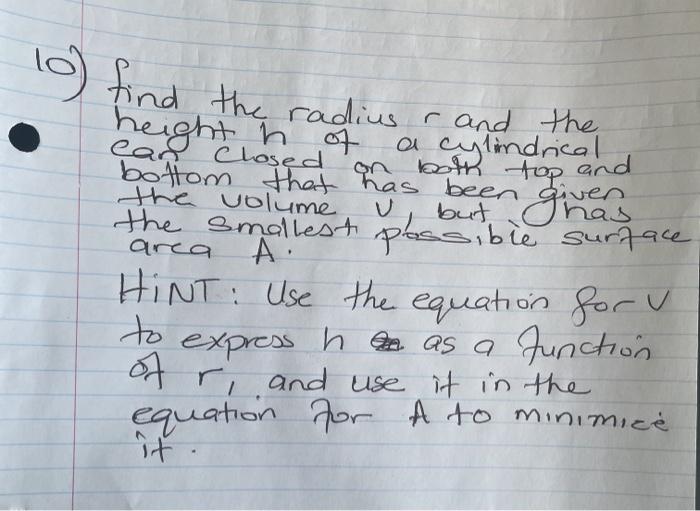 10) find the radius r and the
height h of a cylindrical
can closed on both top and
bottom that has been given
the volume V, but has
the smallest possible surface
area A.
HiNT: Use the equation for V
to express h as a function
of r, and use it in the
equation for A to minimice
it.